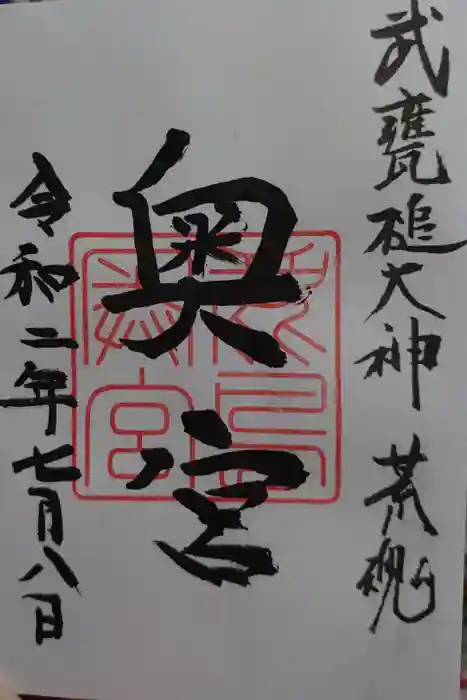 武甕槌大神 荒魂
奥宮
鹿島神宮
令和二年七月八日